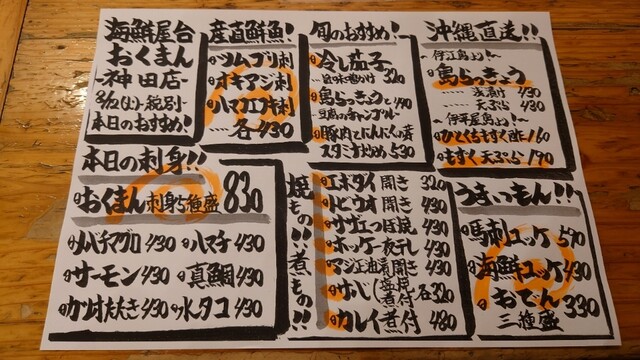 海鮮屋台
おくまん
-神田店-
8/12(土)税別
本日のおすすめ!
産直鮮魚!
ツムブリ刺
オキアジ刺
ハマフエフキ刺
……各430
旬のおすすめ!
冷し茄子
320
島らっきょうと 490
豆腐のチャンプルー
豚肉とにんにくの芽
スタミナ炒め 530
沖縄直送!!
~伊江島より!~
島らっきょう
……浅漬け 430
……天ぷら 430
~伊平屋島より!~
ひとくちもずく酢 160
もずく天ぷら 190
本日の刺身!!
おくまん刺身5種盛 830
メバチマグロ 430 ハマチ 430
サーモン 430 真鯛 430
カツオたたき 430 水タコ 430
焼もの!!煮もの!!
エボダイ開き 320
トビウオ開き 430
サザエつぼ焼 430
ホッケ一夜干し 430
アジ 開き 430
サバ(塩焼 煮付) 各320
カレイ煮付 480
うまいもん!!
馬刺ユッケ 590
海鮮ユッケ 430
おでん 330
三種盛